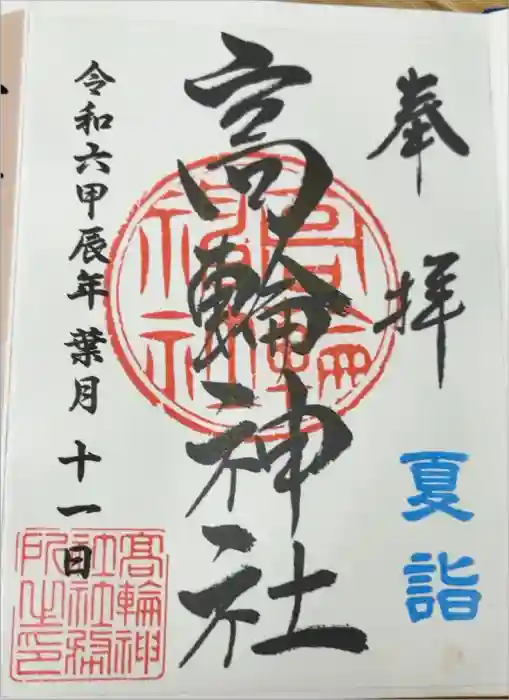 奉拝
夏詣
高輪神社
令和六甲辰年 葉月 十一日
高輪神社
髙輪神社社務所之印